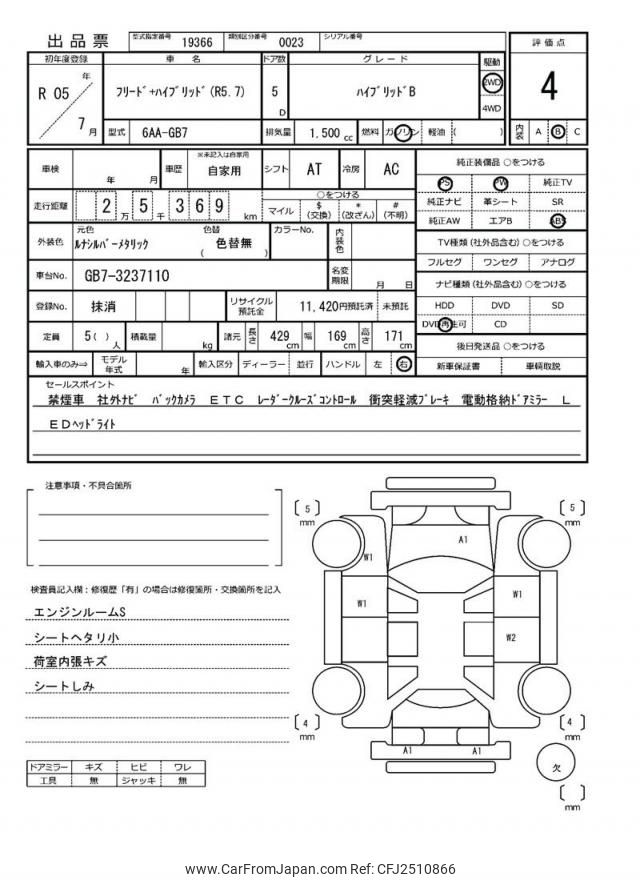 出品票 型式指定番号 19366 類別区分番号 0023 シリアル番号
初年度登録 車名 ドア数 グレード 駆動 評価点
R 05 年 7 月 フリード+ハイブリッド(R5.7) 5 D ハイブリッドB 2WD 4WD 4
型式 6AA-GB7 排気量 1.500 cc 燃料 ガソリン 軽油 ( ) 内装 A B C
車検 年 月 車歴 ※未記入は自家用 自家用 シフト AT 冷房 AC
走行距離 2 万 5 千 3 6 9 km ○をつける マイル $(交換) *(改ざん) #(不明)
外装色 元色 ルナシルバーメタリック 色替 ( 色替無 ) カラーNo. 内装色
車台No. GB7-3237110 名変期限 月 日
登録No. 抹消 リサイクル預託金 11,420円預託済 未預託
定員 5( )人 積載量 kg 諸元 長さ 429 cm 幅 169 cm 高さ 171 cm
輸入車のみ⇒ モデル年式 年 輸入区分 ディーラー 並行 ハンドル 左 右
純正装備品 ○をつける
PS PW 純正TV
純正ナビ 革シート SR
純正AW エアB ABS
TV種類(社外品含む)○をつける
フルセグ ワンセグ アナログ
ナビ種類(社外品含む)○をつける
HDD DVD SD
DVD再生可 CD
後日発送品 ○をつける
新車保証書 車輌取説
セールスポイント
禁煙車 社外ナビ バックカメラ ETC レーダークルーズコントロール 衝突軽減ブレーキ 電動格納ドアミラー L
EDヘッドライト
注意事項・不具合箇所
検査員記入欄:修復歴「有」の場合は修復箇所・交換箇所を記入
エンジンルームS
シートヘタリ小
荷室内張キズ
シートしみ
ドアミラー キズ ヒビ ワレ
工具 無 ジャッキ 無
[ 5 ] mm
[ 5 ] mm
A1
W1
W1
W1
W2
[ 4 ] mm
[ 4 ] mm
A1 A1
欠
[ ] mm
www.CarFromJapan.com Ref: CFJ2510866